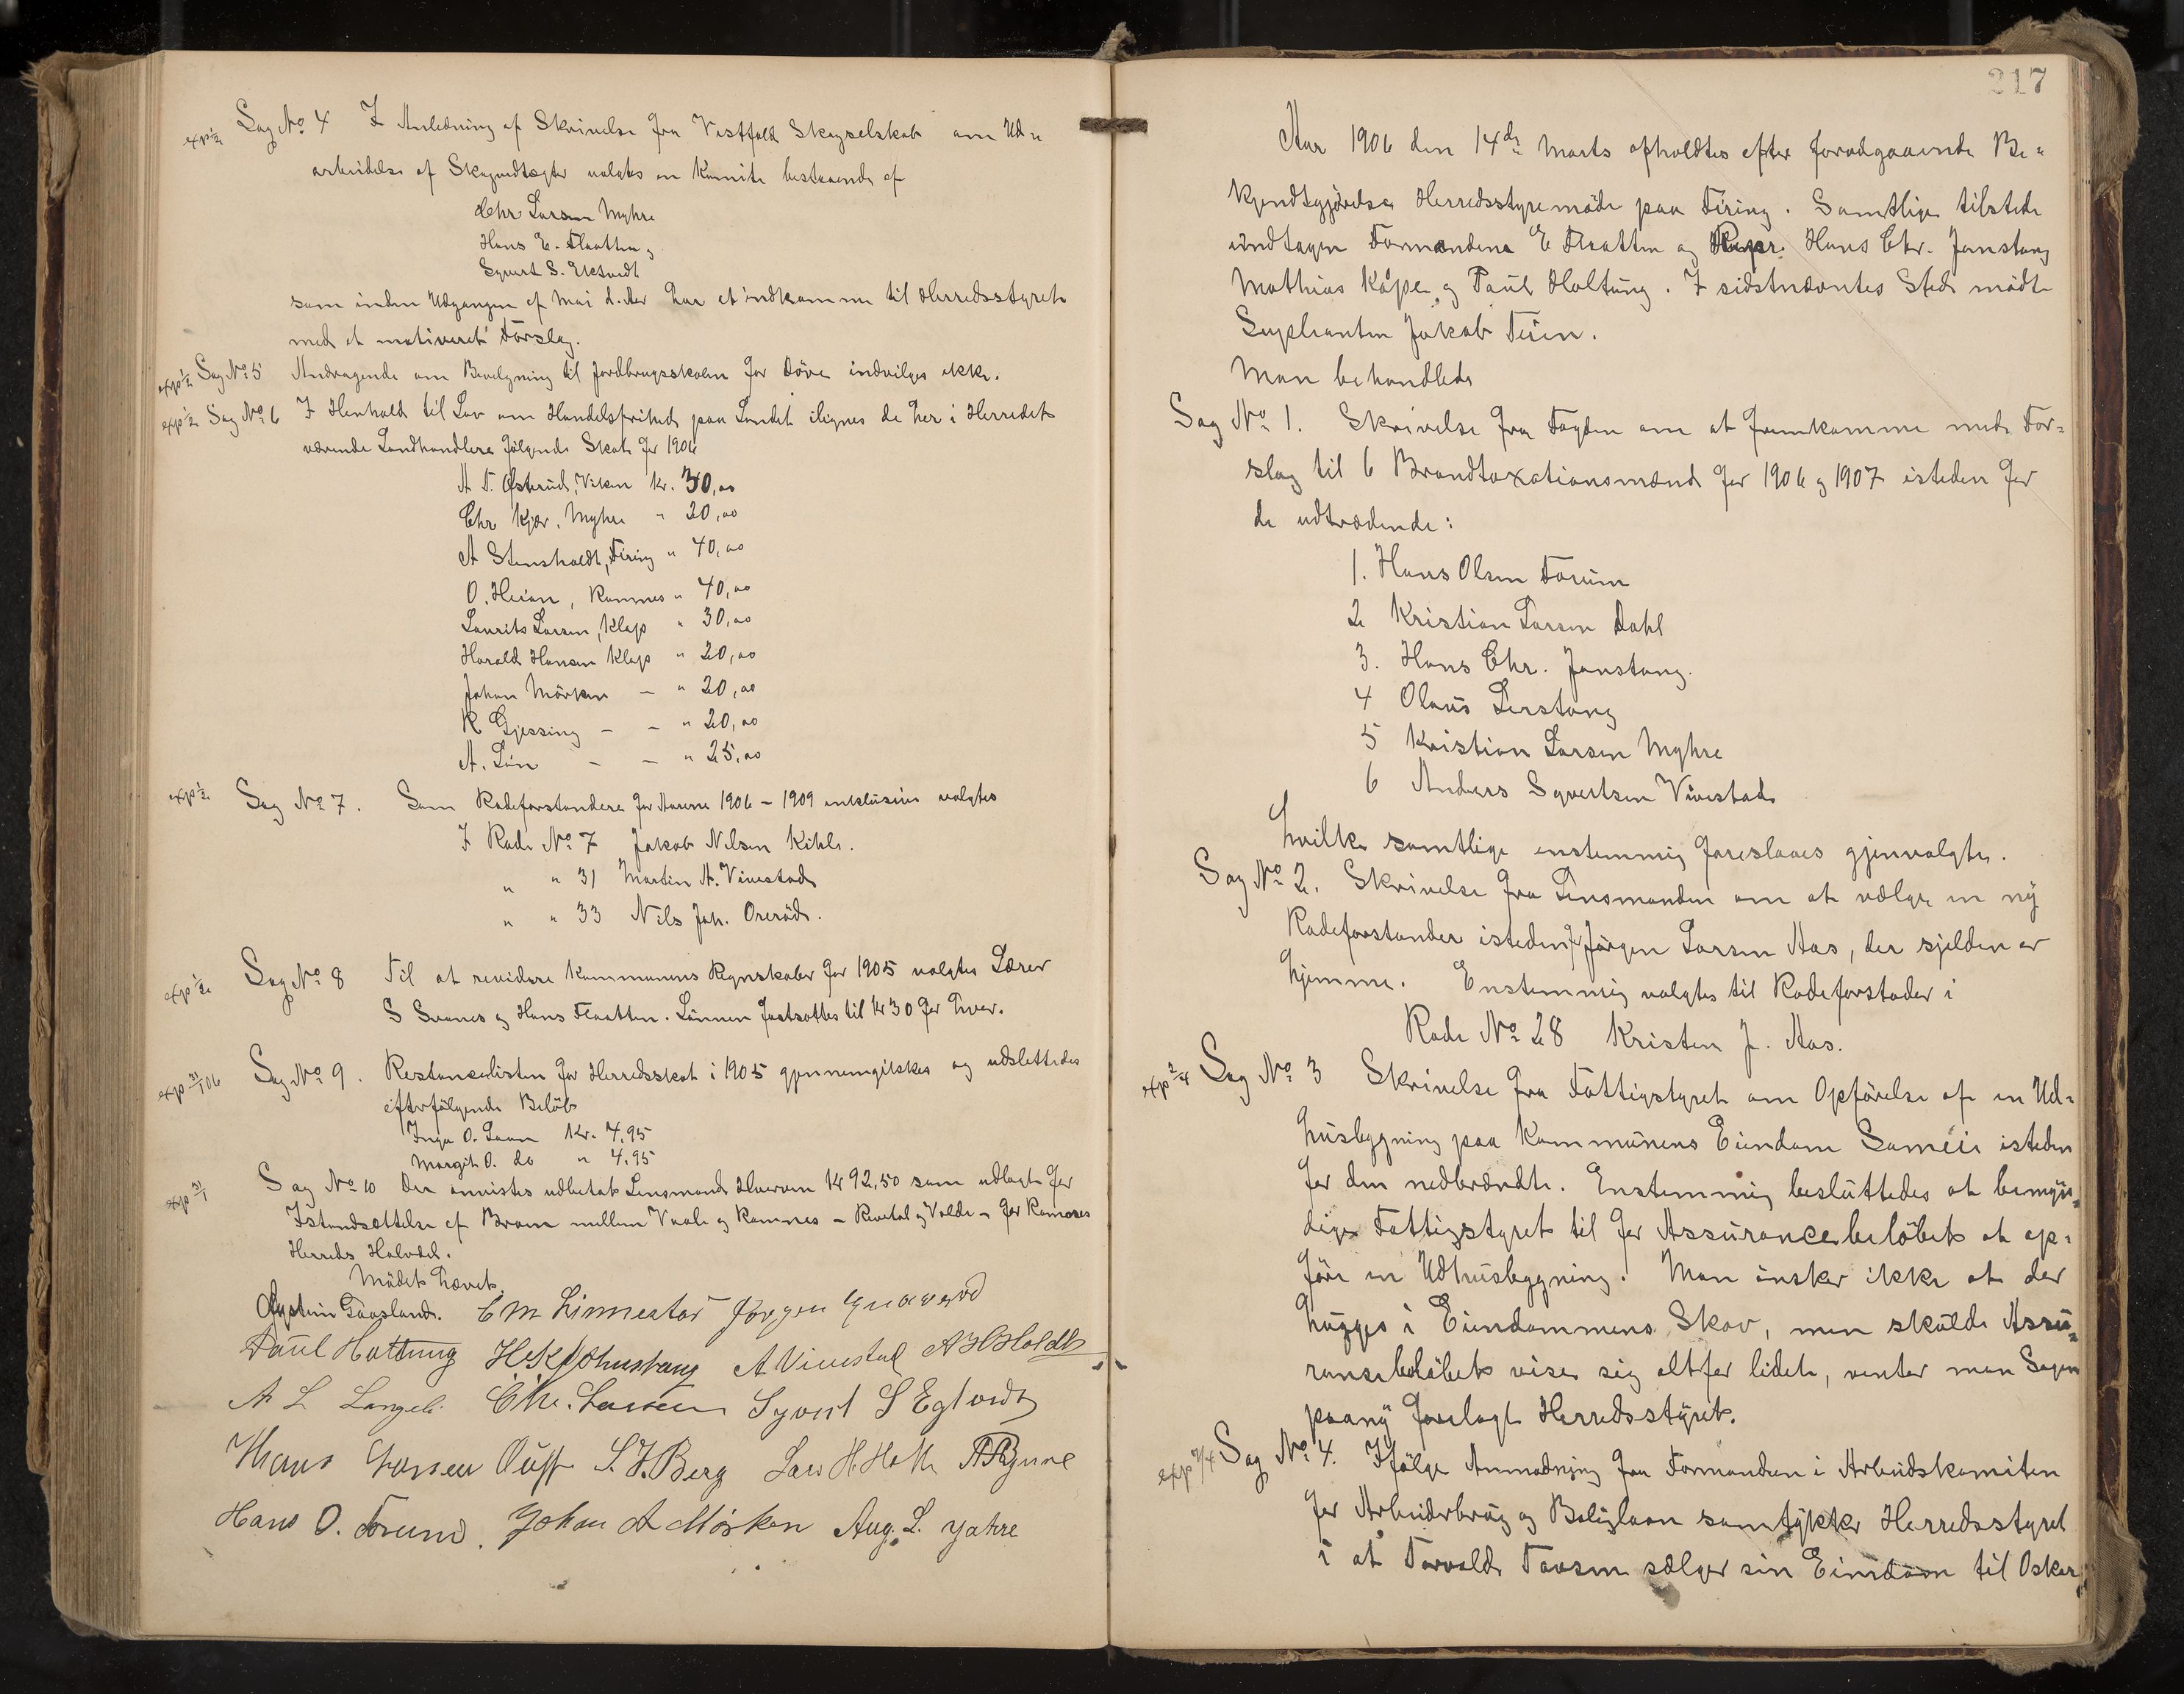 exp ½ Sag No 4 I Anledning af Skrivelse fra Vestfold Skogselskab om Ud=
arbeidelse af Skogvedtægter valgtes en Komite bestaaende af
Chr Larsen Myhre
Hans E. Flaatten og
Syvert S. Ektvedt
som inden Udgangen af Mai d. Aar har at indkomme til Herredsstyret
med et motiveret Forslag.
exp ½ Sag No 5 Andragende om Bevilgning til Jordbrugsskolen for Döve indvilges ikke.
exp ½ Sag No 6 I Henhold til Lov om Handelsfrihed paa Landet ilignes de her i Herredet
værende Landhandlere fölgende Skat for 1906
A F. Østerud, Viken Kr. 30,00
Chr Kjær, Myhre " 20,00
A Stensholdt, Firing " 40,00
O. Heian, Ramnes " 40,00
Laurits Larsen, Klop " 30,00
Harald Hansen Klop " 20,00
Johan Mörken – " 20,00
K Gjessing – – " 20,00
A. Lön – – " 25,00
exp ½ Sag No 7. Som Rodeforstandere for Aarene 1906 – 1909 inklusive valgtes
I Rode No 7 Jakob Nilsen Kihle.
" " 31 Martin A. Vivestad
" " 33 Nils Joh. Oreröd.
exp ½ Sag No 8 Til at revidere Kommunens Regnskaber for 1905 valgtes Lærer
S Svanes og Hans Flaatten. Lönnen fastsattes til Kr 30 for hver.
exp 31/1 06 Sag No 9. Restancelisten for Herredsskat i 1905 gjennemgikkes og udslettedes
efterfölgende Belöb
Inga O. Kr. 4,95
Margit O. do " 4,95
exp 31/1 Sag No 10 Der anvistes udbetalt Lensmand Kr 92,50 som udlagt for
Istandsættelse af Broen mellem Vaale og Ramnes – Revetal og Volde – for Ramnes
Herreds Halvdel.
Mödet hævet.
Øystein Taasland. E M Linnestad Jörgen
Paul Holtung H. K. Johnstang A Vivestad A B Holdt
A L Langeli Chr. Larsen Syvert S Egtvedt
Hans Larsen S. J. Berg Lars H. Holte
Hans O. Forum. Johan A Mörken Aug. L. Jahre
217
Aar 1906 den 14de Marts afholdtes efter forudgaaende Be=
kjendtgjörelse Herredsstyremöde paa Firing. Samtlige tilstede
undtagen Formandene E Flaatten og Repr. Hans Chr. Jonstang
Mathias Kåpe og Paul Holtung. I sidstnævntes Sted mödte
Supleanten Jakob Feien.
Man behandlede
Sag No 1. Skrivelse fra Fogden om at fremkomme med For=
slag til 6 Brandtaxationsmænd for 1906 og 1907 isteden for
de udtrædende:
1. Hans Olsen Forum
2 Kristian Larsen Dahl
3. Hans Chr. Jonstang.
4 Olaus Lerstang
5 Kristian Larsen Myhre
6 Anders Syvertsen Vivestad
hvilke samtlige enstemmig foreslaaes gjenvalgte.
Sag No 2. Skrivelse fra Lensmanden om at vælge en ny
Rodeforstander isteden for Jörgen Larsen Aas, der sjelden er
hjemme. Enstemmig valgtes til Rodeforstader i
Rode No 28 Kristen J. Aas.
exp 2/4 Sag No 3 Skrivelse fra Fattigstyret om Opförelse af en Ud=
husbygning paa Kommunens Eiendom Sameie isteden
for den nedbrændte. Enstemmig besluttedes at bemyn=
dige Fattigstyret til for Assurancebelöbet at op=
före en Udhusbygning. Man önsker ikke at der
hugges i Eiendommens Skov, men skulde Assu=
ransebelöbet vise sig altfor lidet, venter man Sagen
paany forelagt Herredsstyret.
exp 7/4 Sag No 4. Ifölge Anmodning fra Formanden i Arbeidskomiteen
for Arbeiderbrug og Boliglaan samtykker Herredsstyret
i at Torvald Towsen sælger sin Eiendom til Oskar